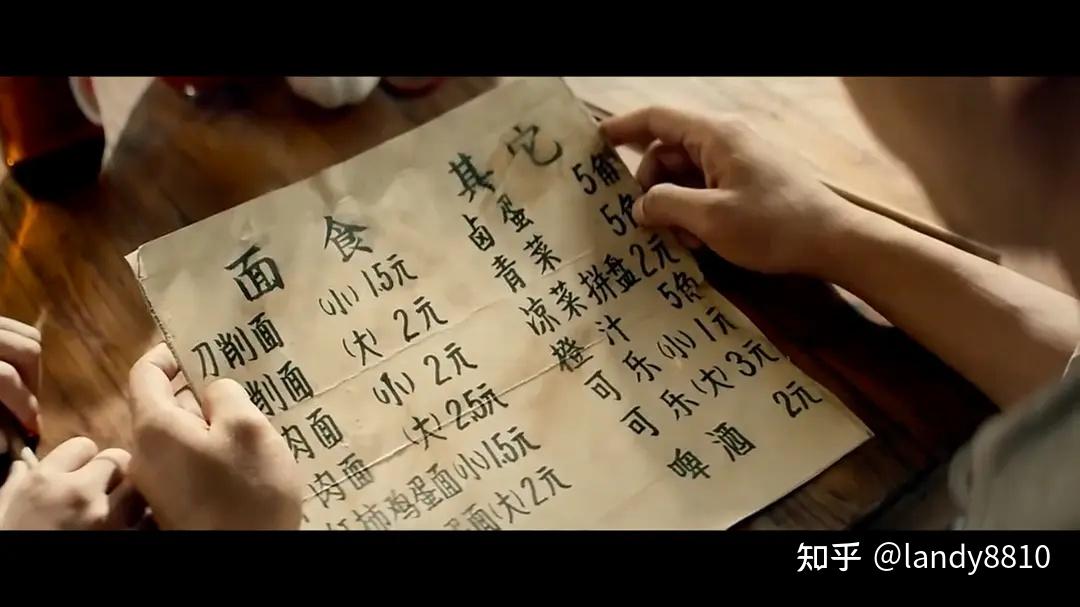 面食
刀削面 (小) 1.5元
削面 (大) 2元
肉面 (小) 2元
肉面 (大) 2.5元
柿鸡蛋面(小)1.5元
面(大)2元
其它
卤蛋 5角
青菜 5角
凉菜拼盘2元
橙汁 5角
可乐(小)1元
可乐(大)3元
啤酒 2元
知乎 @landy8810